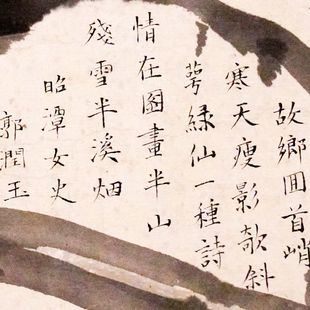 故鄉回首峭
寒天瘦影欹斜
萼綠仙一種詩
情在圖畫半山
殘雪半溪烟
昭潭女史
郭潤玉